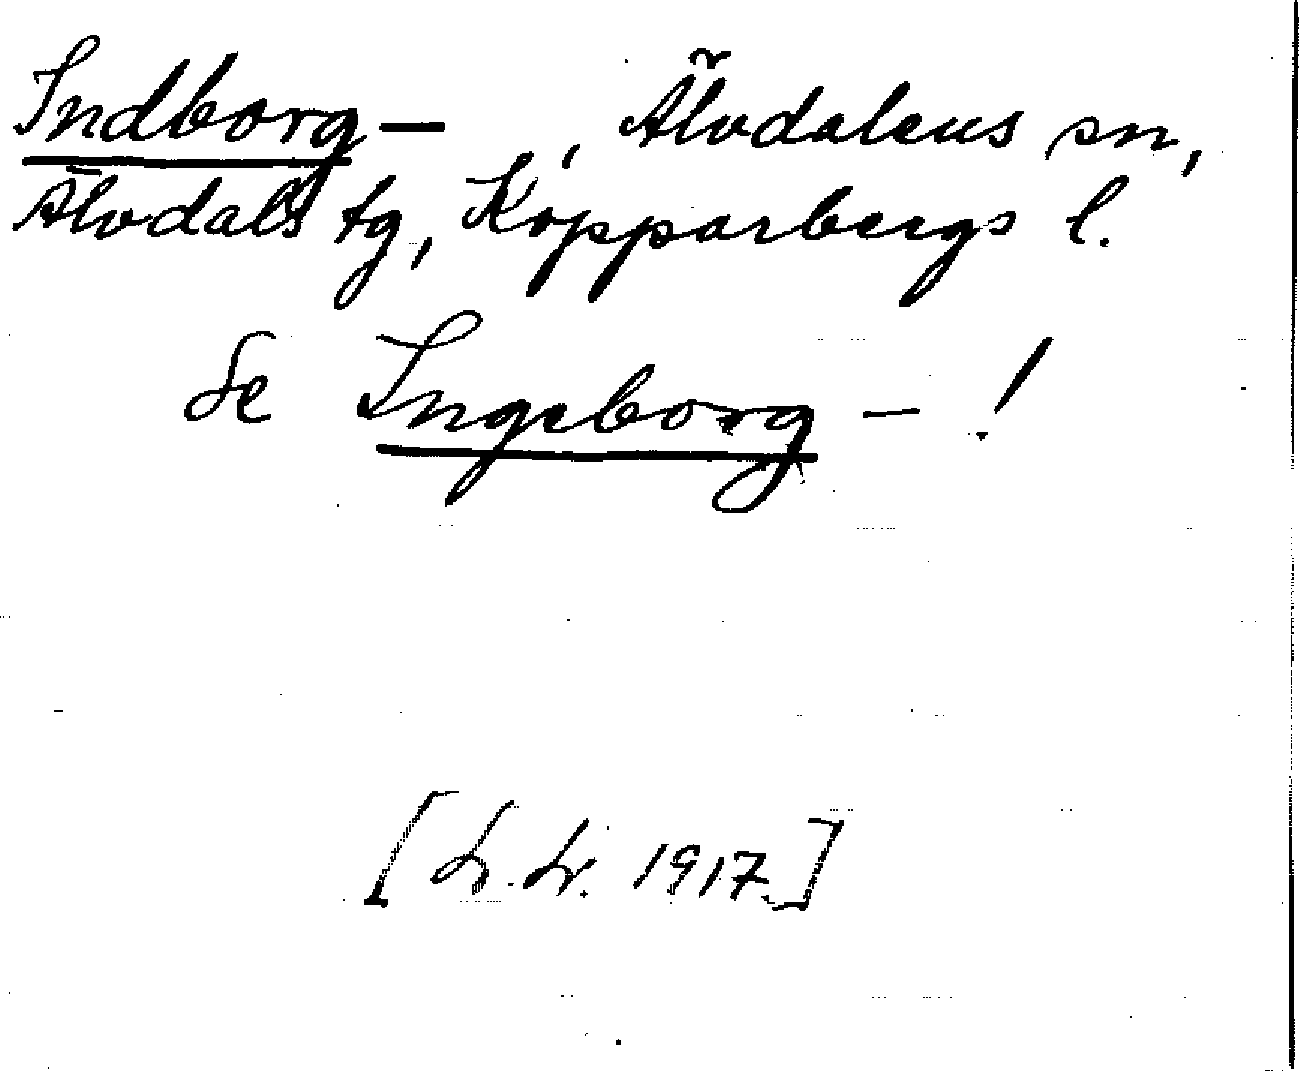 Indborg—, Älvdalens sn,
Älvdals tg, Kopparbergs l.
Se Ingeborg—!
[L. Lr. 1917.]